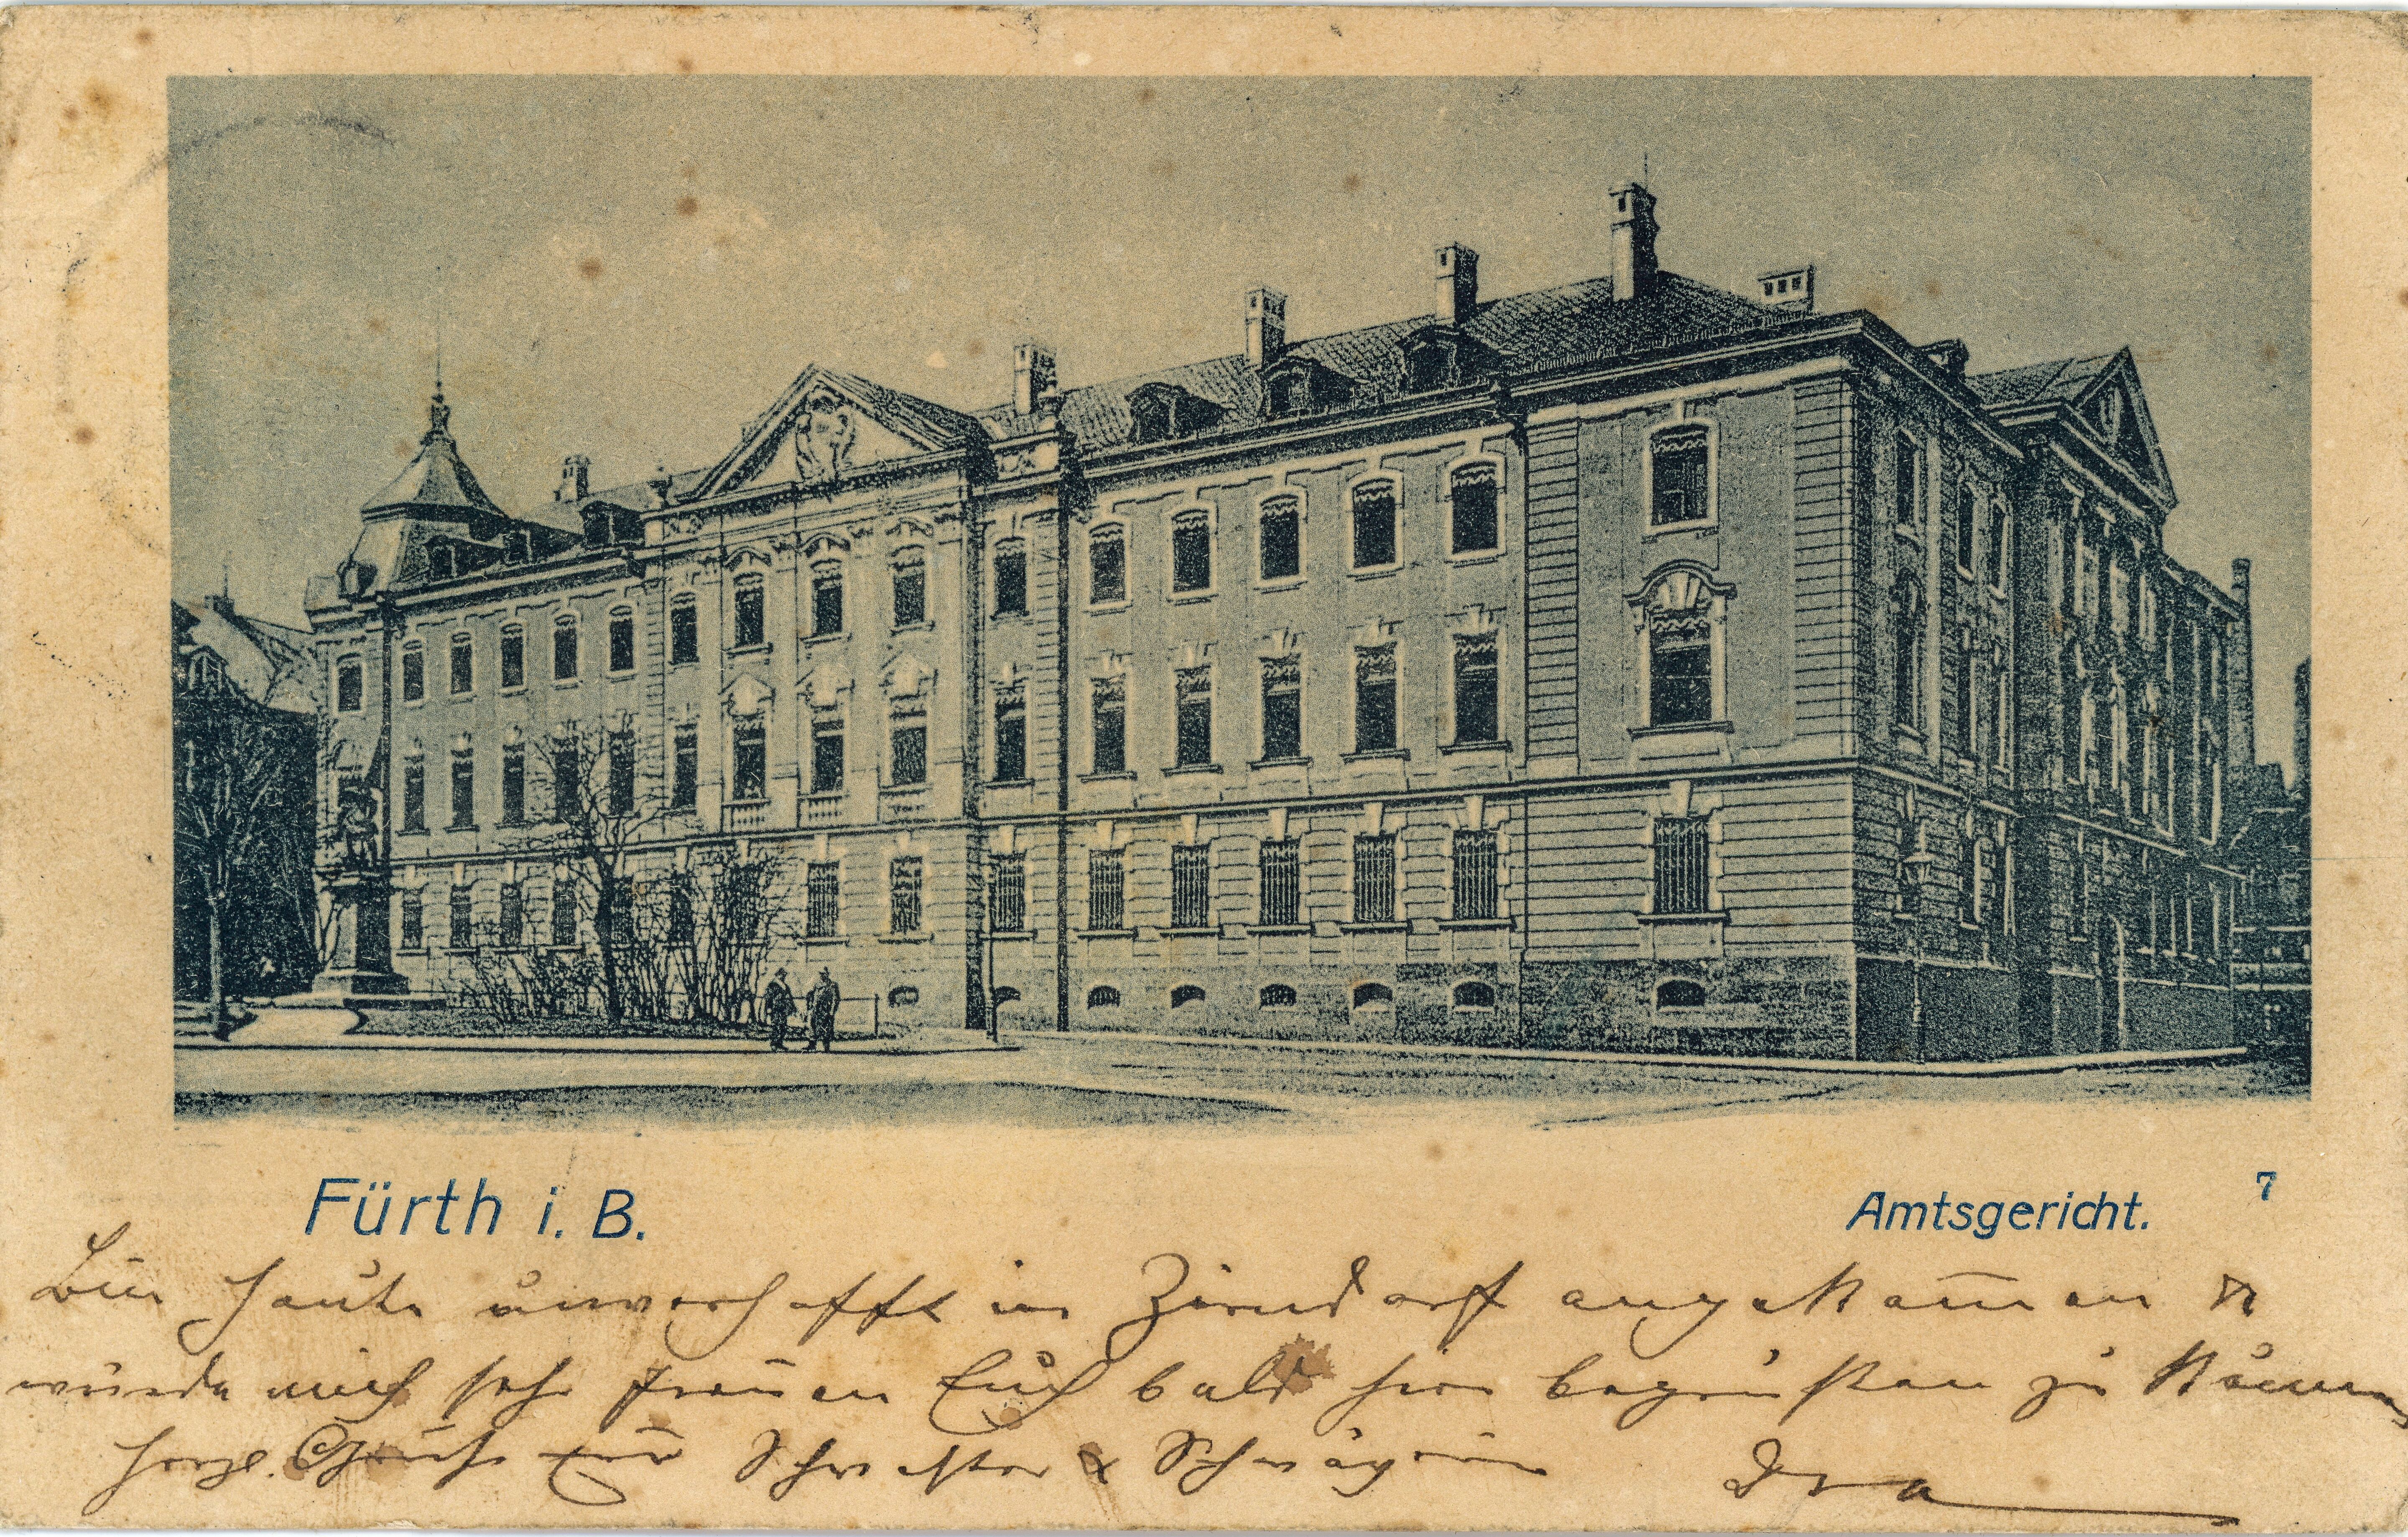 Fürth i. B.
Amtsgericht.
7
Bin heute unverhofft in Zirndorf angekom̄en &
würde mich sehr freuen Euch bald hier begrüßen zu können
herzl. Grüße Schwester & Schwägerin